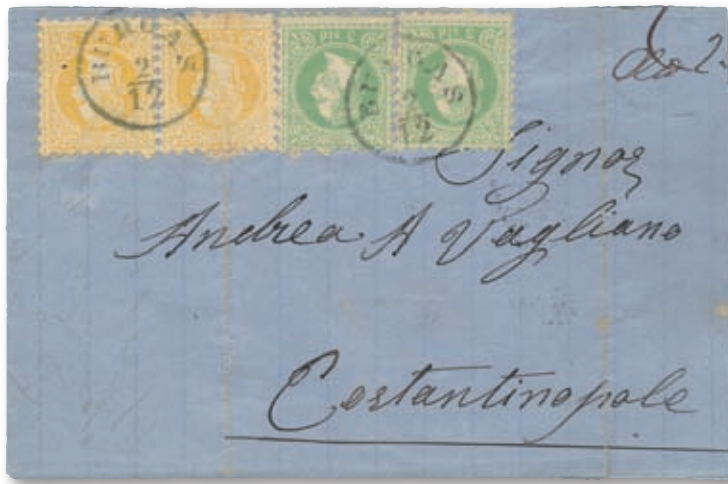 BURGAS
2
12
BURGAS
2
12
Signor
Andrea A Vagliano
Costantinopole